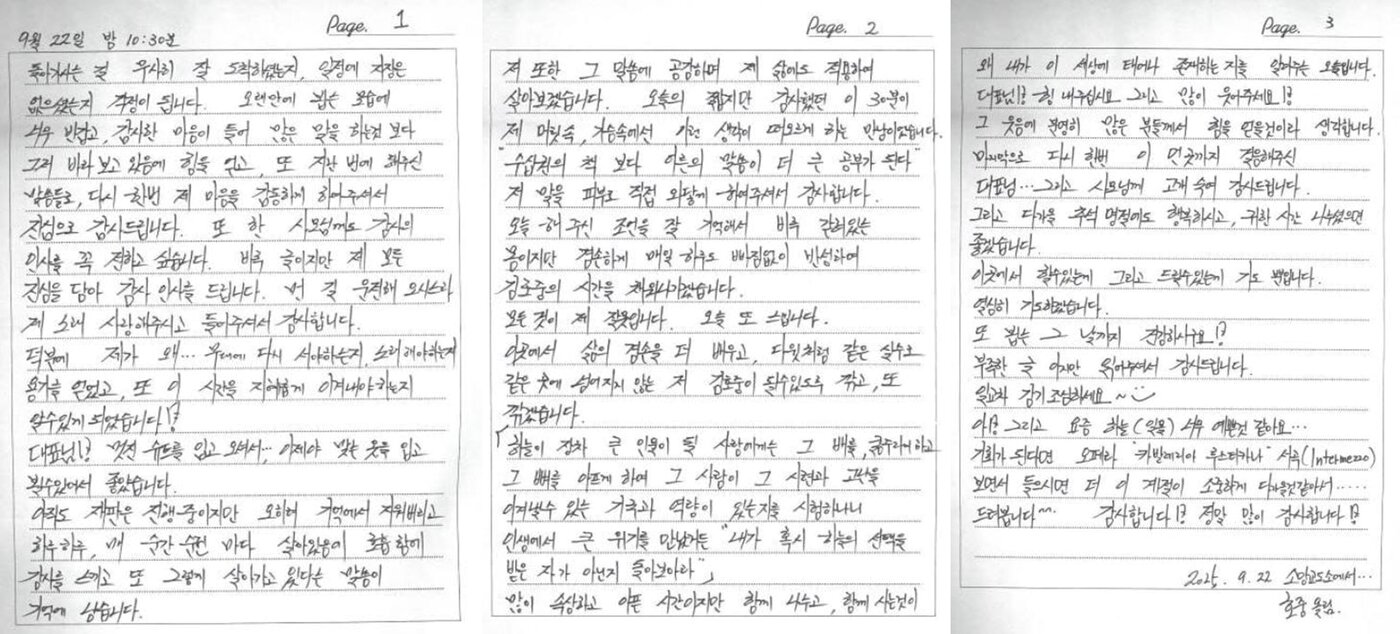 Page. 1
9월 22일 밤 10:30분
돌아가시는 길 무사히 잘 도착하셨는지, 일정에 지장은
없으셨는지 걱정이 됩니다. 오랜만에 뵙는 모습에
너무 반갑고, 감사한 마음이 들어 많은 말을 하는것 보다
그저 바라 보고 있음에 힘을 얻고, 또 지난 번에 해주신
말씀들로, 다시 한번 제 마음을 감동하게 하여주셔서
진심으로 감사드립니다. 또 한 사모님께도 감사의
인사를 꼭 전하고 싶습니다. 비록 글이지만 제 모든
진심을 담아 감사 인사를 드립니다. 먼 길 운전해 오시느라
제 노래 사랑해주시고 들어주셔서 감사합니다.
덕분에 제가 왜... 무대에 다시 서야하는지, 노래해야하는지
용기를 얻었고, 또 이 시간을 지혜롭게 이겨내야 하는지
알수있게 되었습니다!?
대표님!? 멋진 슈트를 입고 오셔서... 이제야 맞는 옷을 입고
뵐수있어서 좋았습니다.
아직도 재판은 진행중이지만 오히려 기억에서 지워버리고
하루하루, 매 순간 순간 마다 살아있음에 호흡함에
감사를 느끼고 또 그렇게 살아가고 있다는 말씀이
기억에 남습니다.
Page. 2
저 또한 그 말씀에 공감하며 제 삶에도 적용하여
살아보겠습니다. 오늘의 짧지만 감사했던 이 30분이
제 머릿속, 가슴속에서 이런 생각이 떠오르게 하는 만남이었습니다.
"수십권의 책 보다 어른의 말씀이 더 큰 공부가 된다"
저 말을 피부로 직접 와닿게 하여주셔서 감사합니다.
오늘 해주신 조언을 잘 기억해서 비록 갇혀있는
몸이지만 겸손하게 매일 하루도 빠짐없이 반성하며
김호중의 시간을 채워나가겠습니다.
모든 것이 제 잘못입니다. 오늘 또 느낍니다.
이곳에서 삶의 겸손을 더 배우고, 다윗처럼 같은 실수로
같은 곳에 넘어지지 않는 저 김호중이 될수있도록 깎고, 또
깎겠습니다.
「하늘이 장차 큰 인물이 될 사람에게는 그 배를 굶주리게하고
그 뼈를 아프게 하며 그 사람이 그 시련과 고난을
이겨낼수 있는 기국과 역량이 있는지를 시험하나니
인생에서 큰 위기를 만났거든 "내가 혹시 하늘의 선택을
받은 자가 아닌지 돌아보아라"」
많이 속상하고 아픈 시간이지만 함께 나누고, 함께 사는것이
Page. 3
왜 내가 이 세상에 태어나 존재하는 지를 알려주는 오늘입니다.
대표님!? 힘 내주십시요 그리고 많이 웃어주세요!?
그 웃음에 분명히 많은 분들께서 힘을 얻을것이라 생각합니다.
마지막으로 다시 한번 이 먼곳까지 걸음해주신
대표님... 그리고 사모님께 고개 숙여 감사드립니다.
그리고 다가올 추석 명절에도 행복하시고, 귀한 시간 나누셨으면
좋겠습니다.
이곳에서 할수있는게 그리고 드릴수있는게 기도 뿐입니다.
열심히 기도하겠습니다.
또 뵙는 그 날까지 건강하시구요!?
부족한 글 이지만 읽어주셔서 감사드립니다.
일교차 감기조심하세요~
아!? 그리고 요즘 하늘(일몰) 너무 예쁜것 같아요...
기회가 된다면 오페라 "카발레리아 루스티카나" 서곡(Intermezzo)
보면서 들으시면 더 이 계절이 소중하게 다가올것같아서.....
드려봅니다~~ 감사합니다!? 정말 많이 감사합니다!?
2025. 9. 22 소망교도소에서...
호중 올림.